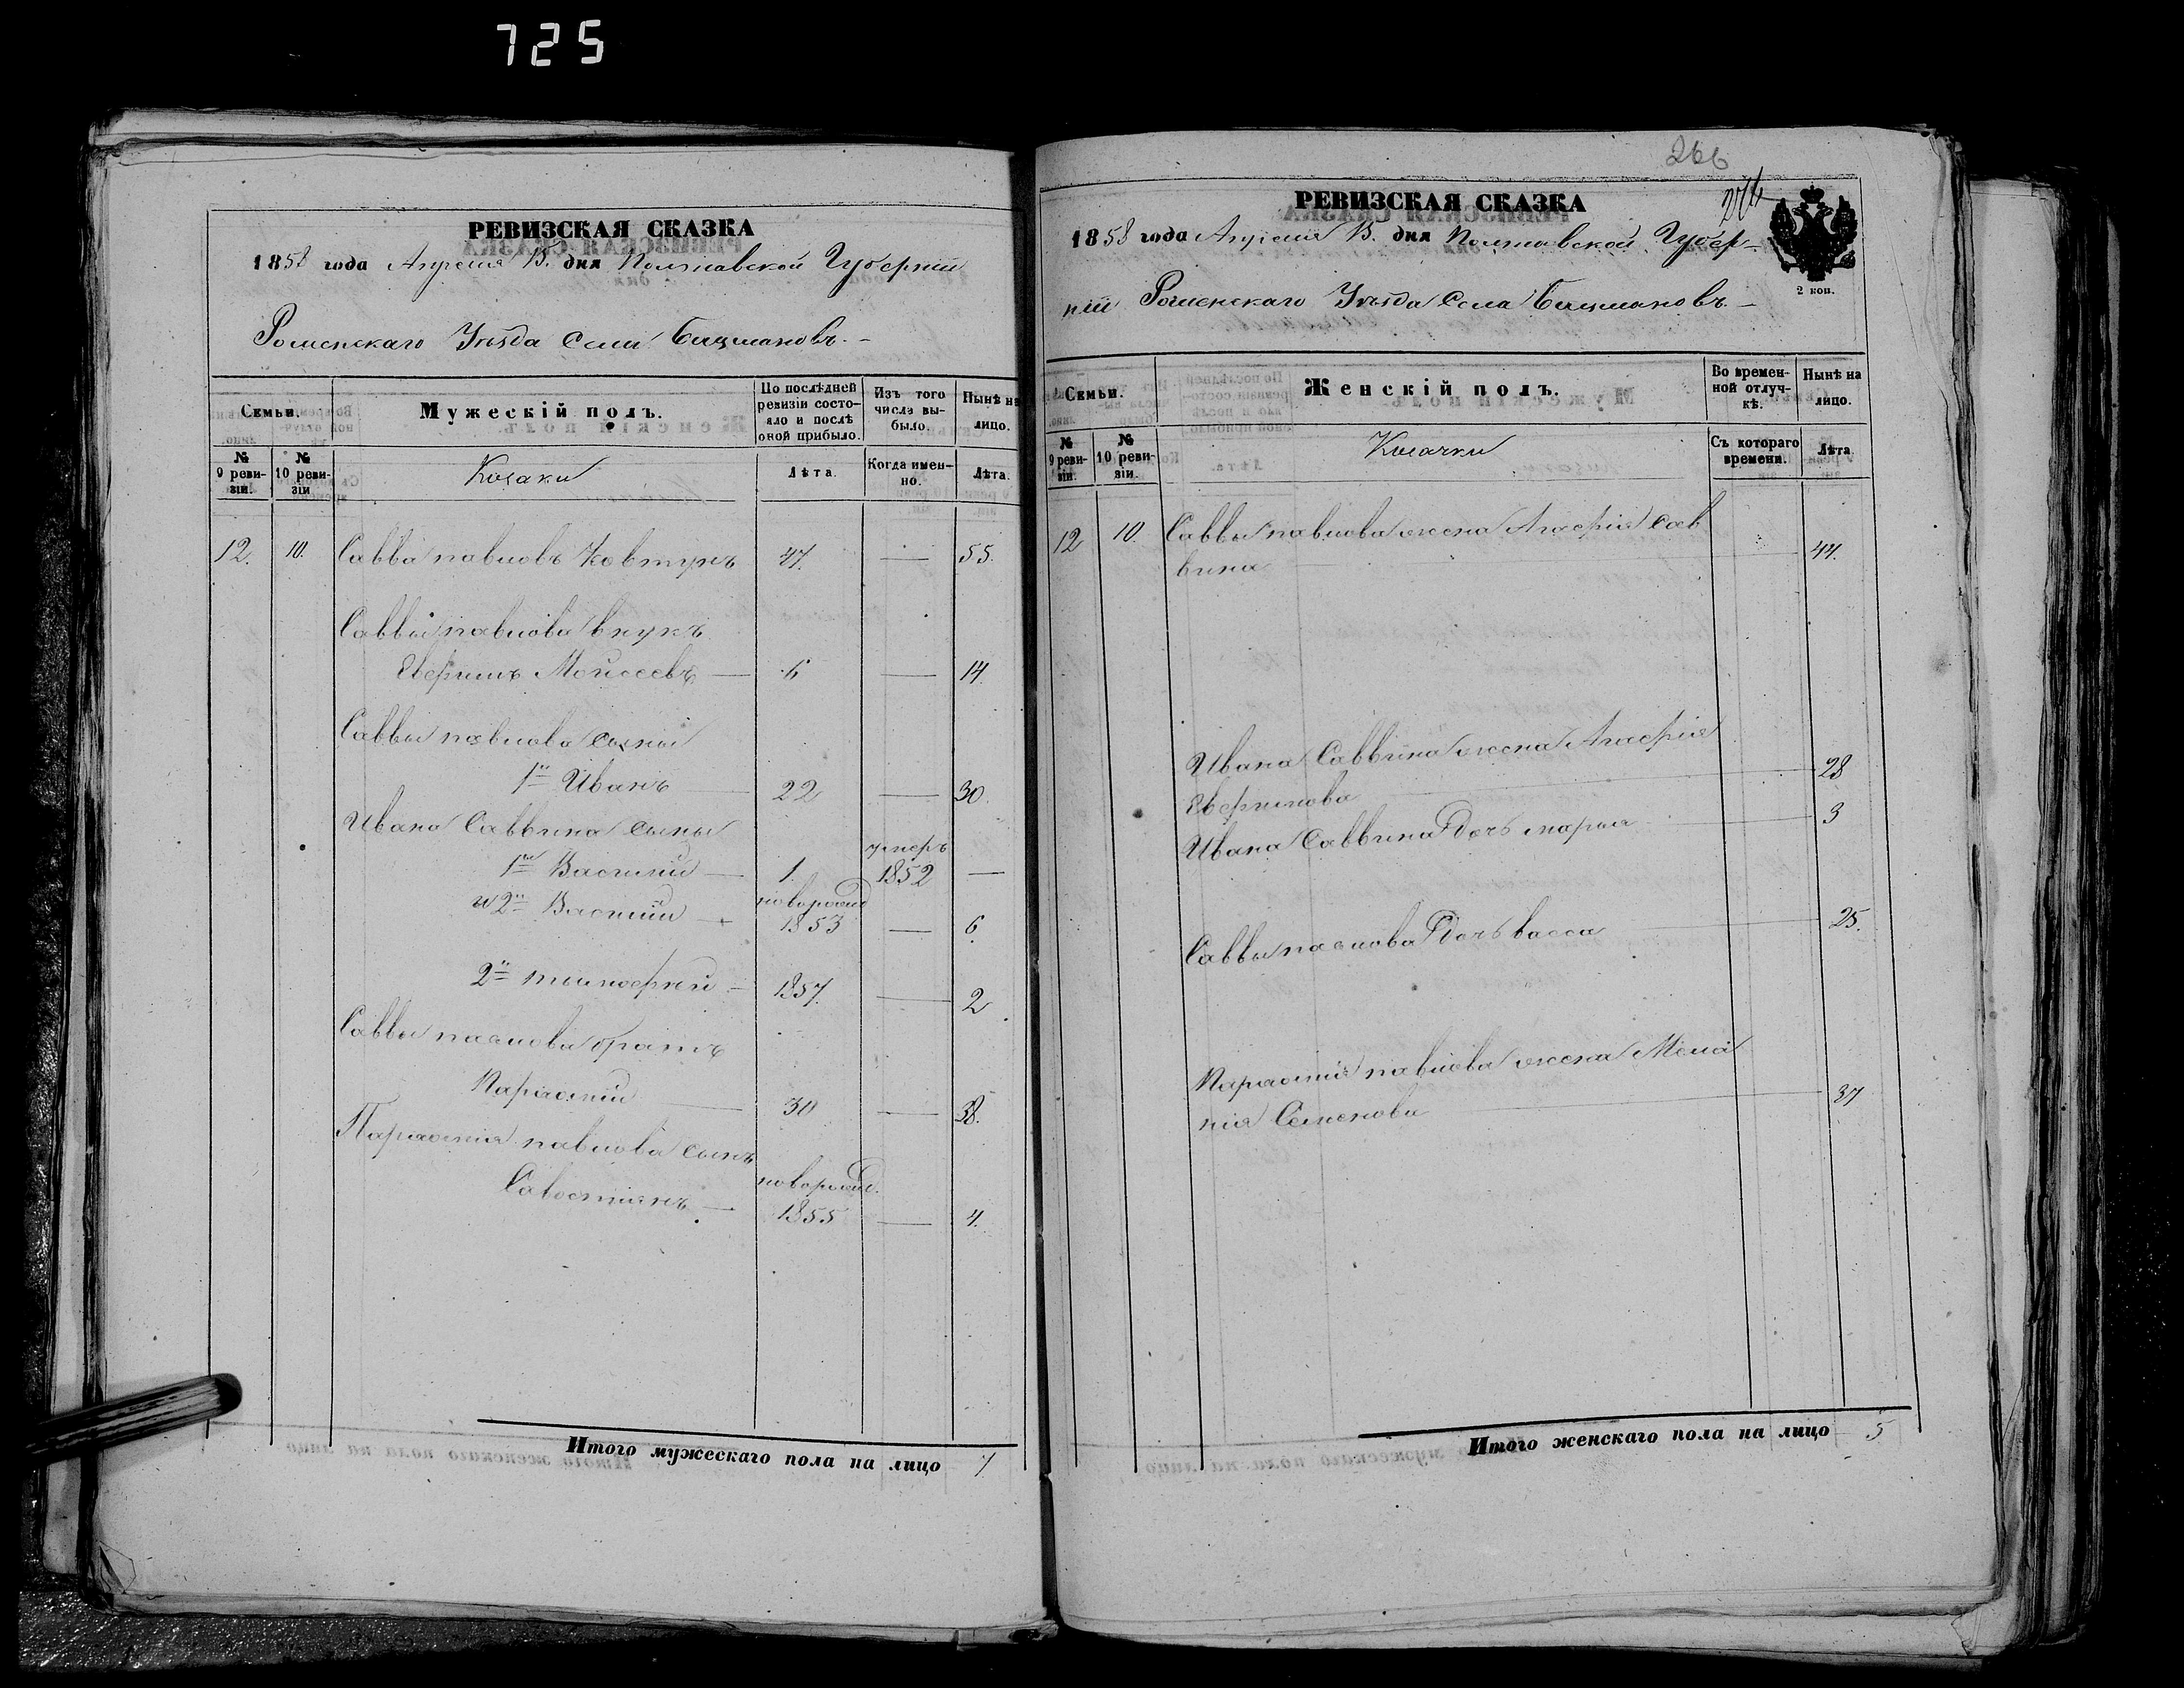 725
РЕВИЗСКАЯ СКАЗКА
1858 года Апреля 15. дня Полтавской Губерніи
Роменскаго Уѣзда Села Бацмановъ.
Семьи.
Мужескій полъ.
По послѣдней ревизіи состояло и послѣ оной прибыло.
Изъ того числа выбыло.
Нынѣ на лицо.
№ 9 ревизіи.
№ 10 ревизіи
Козаки
Лѣта.
Когда именно.
Лѣта.
12. 10. Савва павловъ Ковтунъ 47. — 55.
Саввы павлова внукъ
Моисеевъ — 6 — 14.
Саввы павлова сыны
1й Иванъ — 22 — 30.
Ивана Саввина сыны
1й Василий — 1. умеръ 1852 —
и 2й Василий — новорожд 1853 — 6.
2й тимофей — 1857. — 2
Саввы павлова братъ
Парфений — 30 — 38.
Парфения павлова сынъ
Савостиянъ — новорожд. 1855 — 4.
Итого мужескаго пола на лицо 7
266
РЕВИЗСКАЯ СКАЗКА
1858 года Апреля 15. дня Полтавской Губер-
2 коп.
ніи Роменскаго Уѣзда Села Бацмановъ.
Семьи.
Женскій полъ.
Во временной отлучкѣ.
Нынѣ на лицо.
№ 9 ревизіи.
№ 10 ревизіи.
Козачки
Съ котораго времени.
Лѣта.
12 10. Саввы павлова жена Агафия Сав
вина — 44.
Ивана Саввина жена Агафия
— 28
Ивана Саввина Дочь марья — 3
Саввы павлова Дочь васса — 25.
Парфения павлова жена Мела
ния Семенова — 37
Итого женскаго пола на лицо 5